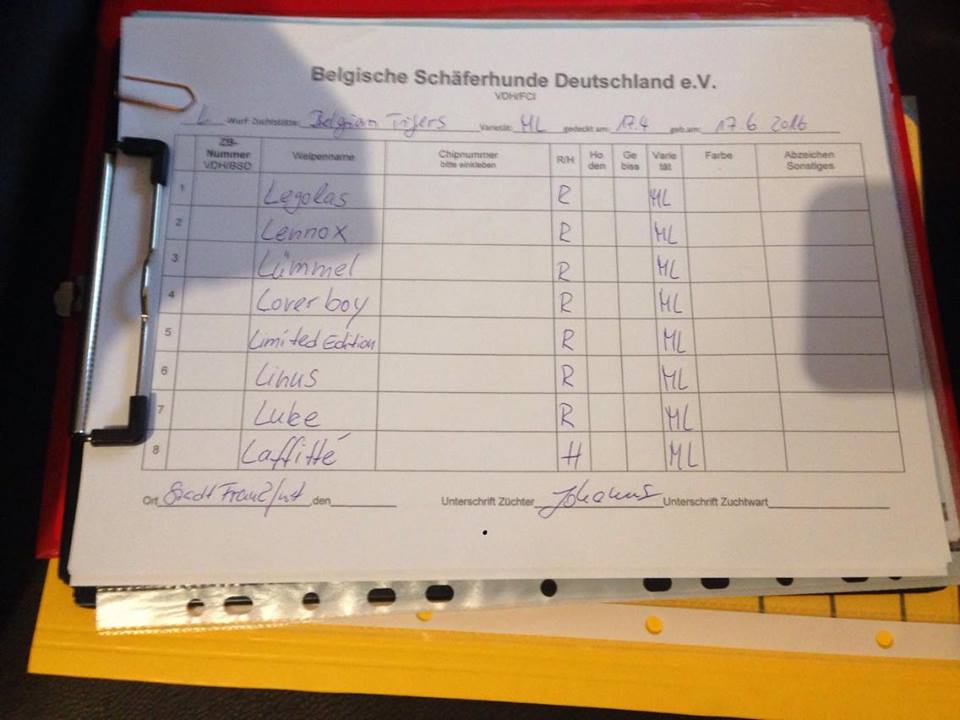 Belgische Schäferhunde Deutschland e.V.
VDH/FCI
L -Wurf Zuchtstätte: Belgian Tigers Varietät: ML gedeckt am: 17.4 geb.am: 17.6.2016
ZB-Nummer VDH/BSD Welpenname Chipnummer bitte einkleben R/H Hoden Gebiss Varietät Farbe Abzeichen Sonstiges
1 Legolas R ML
2 Lennox R ML
3 Lümmel R ML
4 Loverboy R ML
5 Limited Edition R ML
6 Linus R ML
7 Luke R ML
8 Laffitté H ML
Ort Stadt den Unterschrift Züchter Unterschrift Zuchtwart